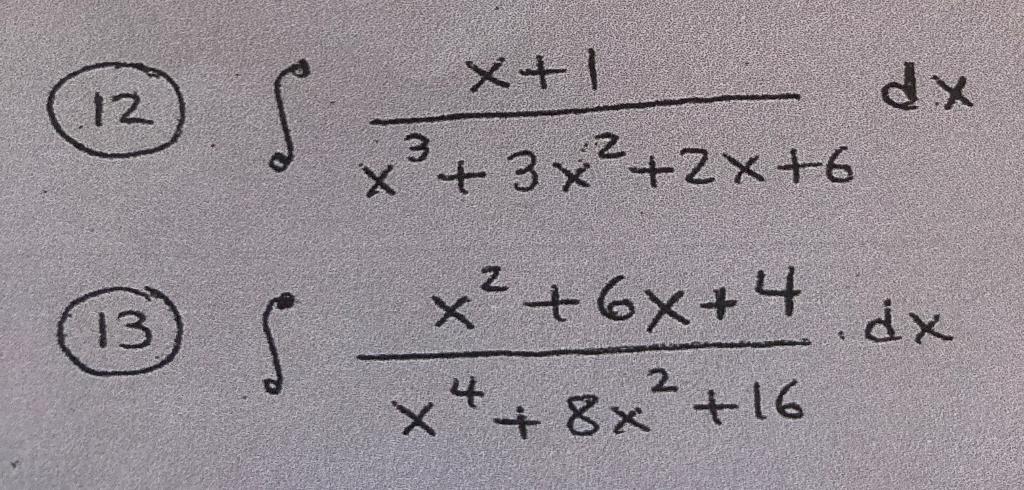 12 ∫ x+1 / x³+3x²+2x+6 dx
13 ∫ x²+6x+4 / x⁴+8x²+16 . dx